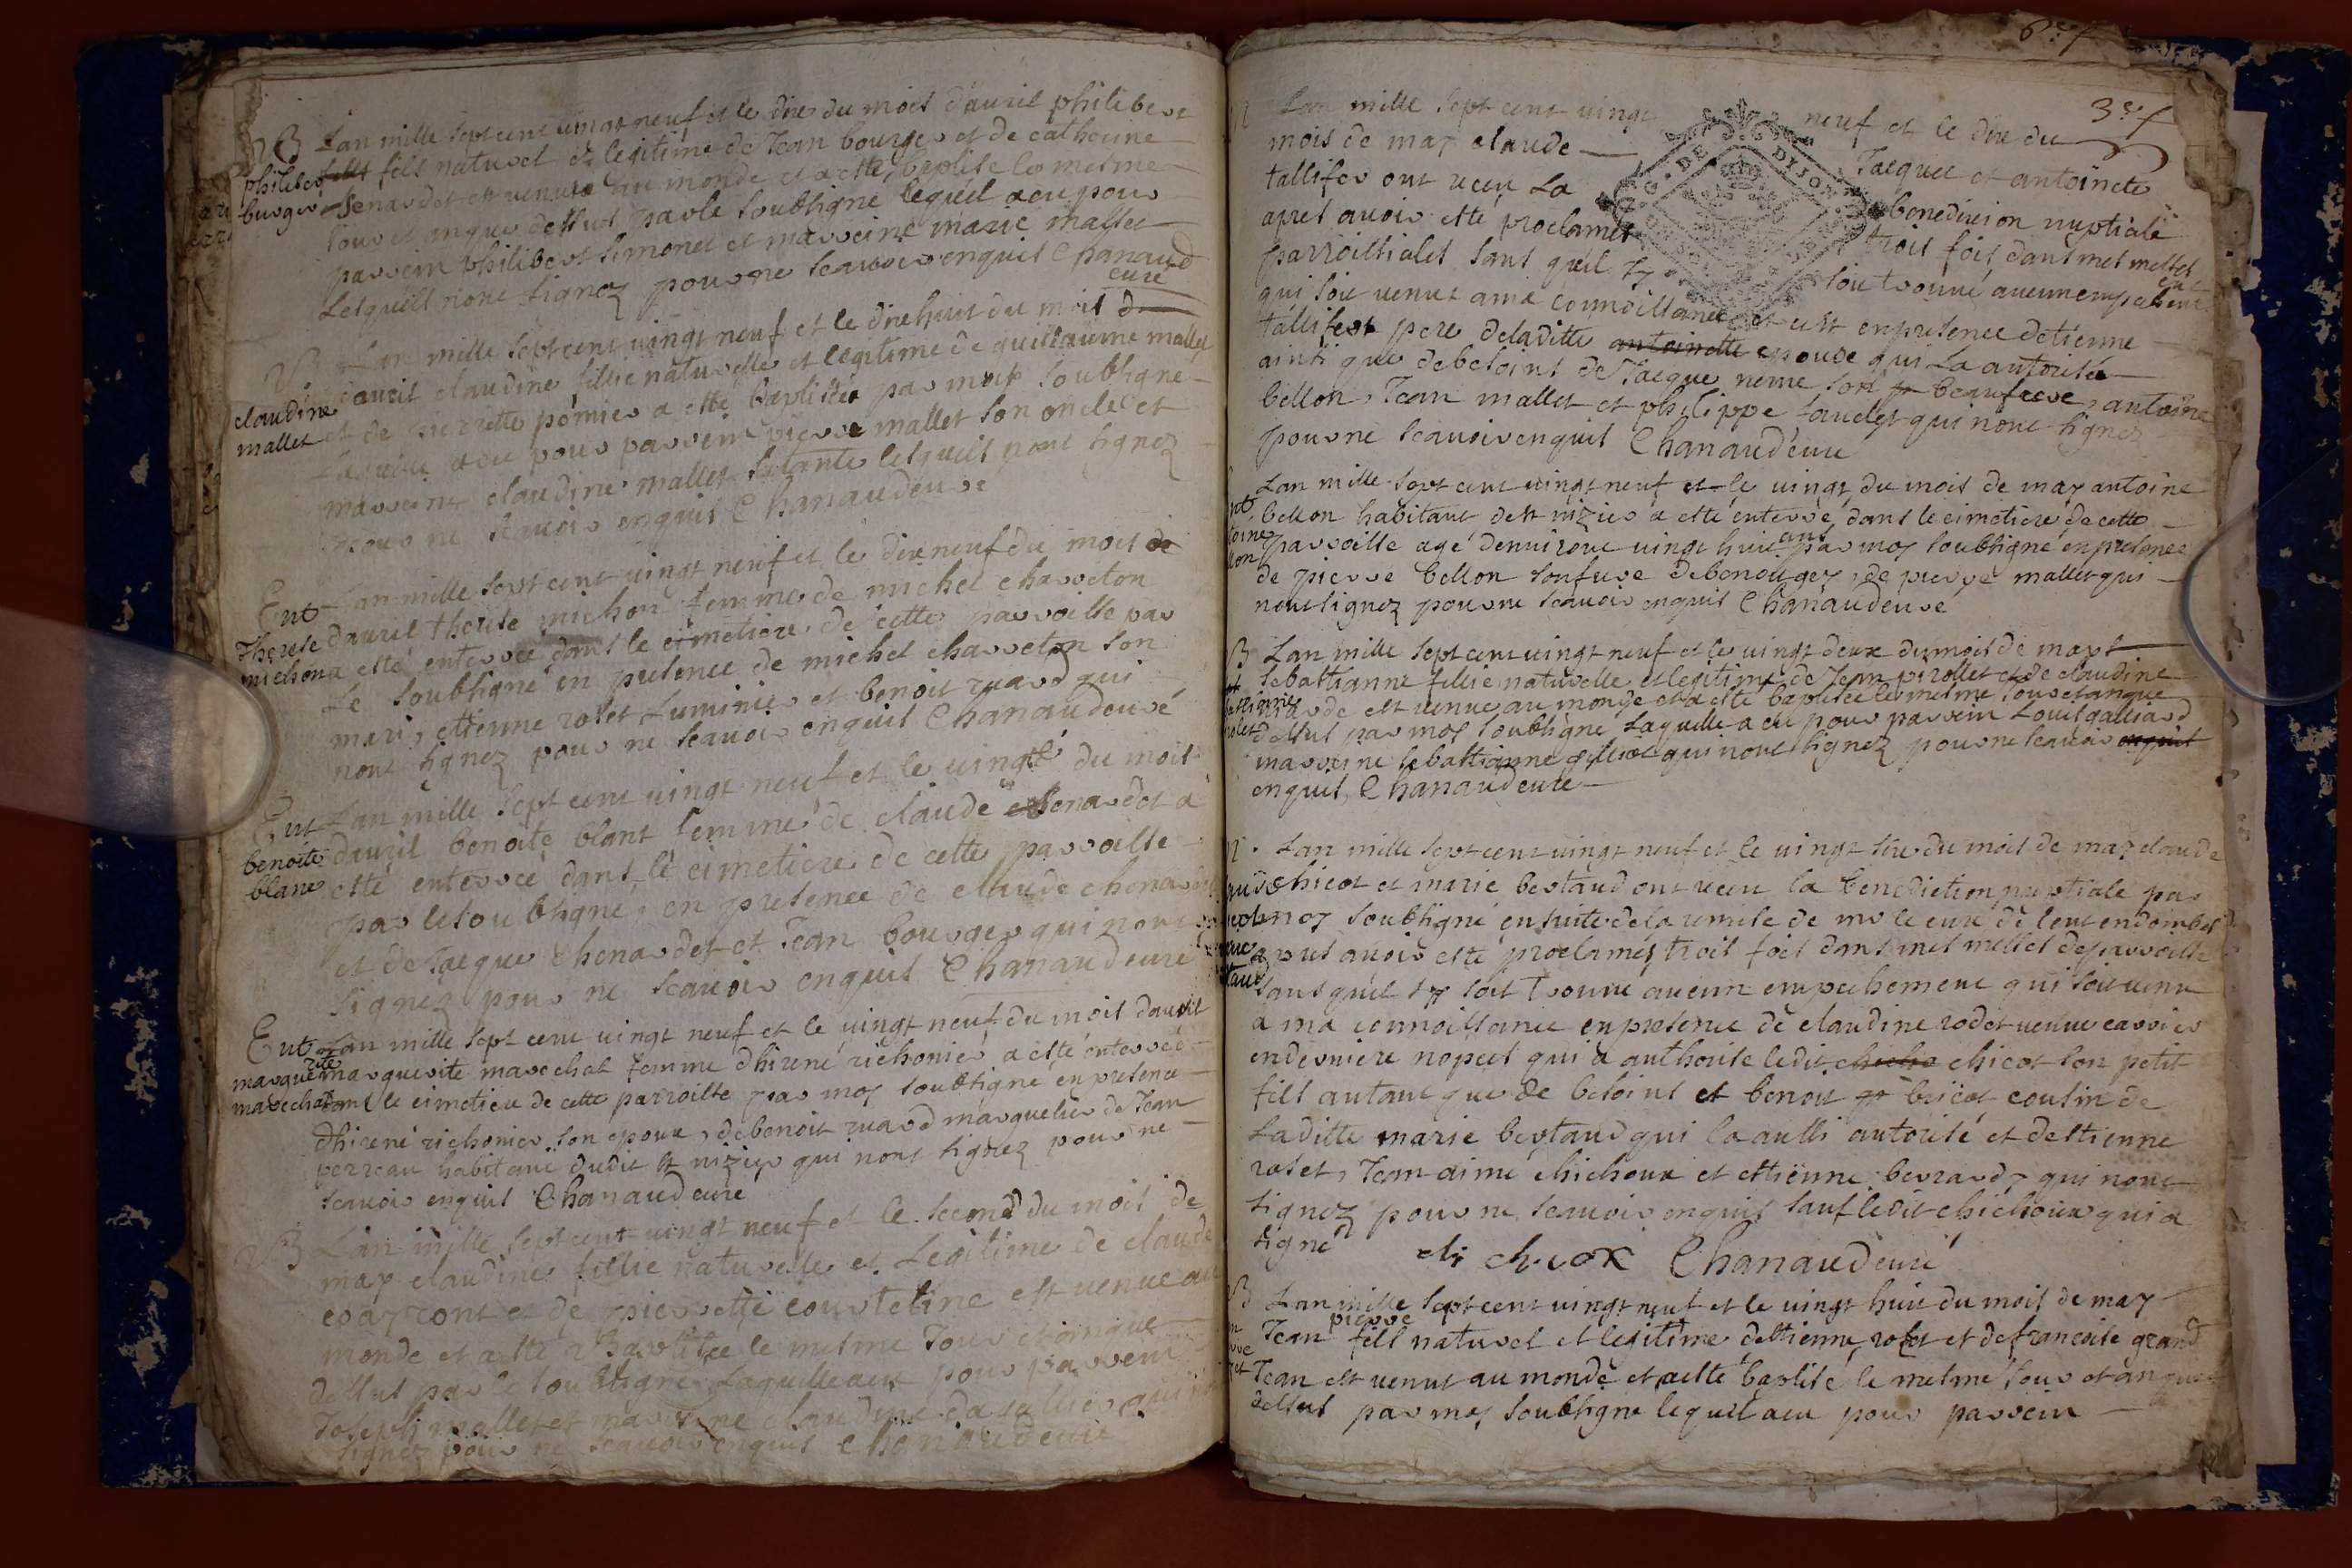 B Lan mille sept cent vingt neuf et le dix du mois davril philibert
philiber fils naturel et legitime de Jean bourger et de catherine
burger chenardet est venu au monde et a esté baptisé le mesme
jour et an que dessus par le soubsigné lequel a eu pour
parrein philibert simonet et marreine marie mallet
lesquels nont signez pour ne scavoir enquis Chanaud
curé
B Lan mille sept cent vingt neuf et le dix huit du mois d
claudine davril claudine fillie naturelle et legitime de guillaume mallet
mallet et de pierrette pomier a esté baptisée par moy soubsigné
laquelle a eu pour parrein pierre mallet son oncle et
marreine claudine mallet sa tante lesquels nont signez
pour ne scavoir enquis Chanaud curé
Ent Lan mille sept cent vingt neuf et le dix neuf du mois de
Therese davril therese michon femme de michel charreton
michon a esté enterrée dans le cimetiere de cette parroisse par
le soubsigné en presence de michel charreton son
mari, estienne rolet luminier et benoit ruard qui
nont signez pour ne scavoir enquis Chanaud curé
Ent Lan mille sept cent vingt neuf et le vingt du mois
benoite davril benoite blanc femme de claude chenardet a
blanc esté enterrée dans le cimetiere de cette parroisse
par le soubsigné, en presence de claude chenardet
et de Jacque chenardet et Jean bourger qui nont
signez pour ne scavoir enquis Chanaud curé
Ent Lan mille sept cent vingt neuf et le vingt neuf du mois davril
marguerite marguerite marechat femme dhirené richonier a esté enterrée
marechat dans le cimetiere de cette parroisse par moy soubsigné en presence
dhirené richonier son epoux, de benoit ruard marguelier de Jean
perreau habitant dudit st nizier qui nont signez pour ne
scavoir enquis Chanaud curé
B Lan mille sept cent vingt neuf et le second du mois de
may claudine fillie naturelle et legitime de claude
et de pierrette est venue au
monde et a esté Baptisée le mesme jour et an que
dessus par le soubsigné laquelle a eu pour parrein
Joseph mallet et marreine claudine qui
signez pour ne scavoir enquis Chanaud curé
6e f
3e f
Lan mille sept cent vingt neuf et le dix du
mois de may claude Jacquet et antoinete
tallifer ont receu La benediction nuptiale
apres avoir esté proclamés trois fois dans mes messes
parroissiales sans quil sy soit trouvé aucun empechement
qui soit venu a ma connoissance et cest en presence detienne
tallifert pere de laditte antoinette epouse qui La autorisée
ainsi que de besoins de Jacque neme son beaufrere, antoine
bellon, Jean mallet et philippe qui nont signez
pour ne scavoir enquis Chanaud curé
CO. DE DIJON
Lan mille sept cent vingt neuf et le vingt du mois de may antoine
bellon habitant de st nizier a esté enterré, dans le cimetiere de cette
parroisse agé denviron vingt huit ans par moy soubsigné en presence
de pierre bellon son frere de pierre mallet qui
nont signez pour ne scavoir enquis Chanaud curé
B Lan mille sept cent vingt neuf et le vingt deux du mois de may
sebastianne fillie naturelle et legitime de Jean pirollet et de claudine
ruarde est venue au monde et a esté baptisée le mesme jour et an que
dessus par moy soubsigné Laquelle a eu pour parrein Louis galliard
marreine sebastianne qui nont signez pour ne scavoir enquis
enquis, Chanaud curé
Lan mille sept cent vingt neuf et le vingt six du mois de may claude
chicot et marie bertaud ont receu la benediction nuptiale par
moy soubsigné ensuite de la remise de mr le curé de
apres avoir esté proclamés trois fois dans mes messes de parroisse
sans quil sy soit trouvé aucun empechement qui soit venu
a ma connoissance en presence de claudine rodet
en derniere nopces qui a authorisé ledit chicot son petit
fils autant que de besoins et benoit bricot cousin de
Laditte marie bertaud qui la aussi autorisé et destienne
rolet, Jean aimé chichoux et estienne berrardy qui nont
signez pour ne scavoir enquis sauf ledit chichoux qui a
signé chichox Chanaud curé
B Lan mille sept cent vingt neuf et le vingt huit du mois de may
pierre
Jean fils naturel et legitime destienne rolet et de francoise grand
Jean est venu au monde et a esté baptisé le mesme jour et an que
dessus par moy soubsigné lequel a eu pour parrein